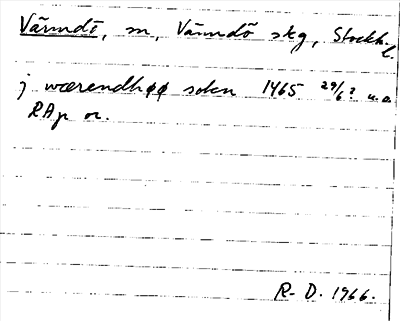 Värmdö, sn, Värmdö skg, Stockh. l.
j wærendhøø sokn 1465 29/6? u.o.
RAp or.
R-D. 1966.